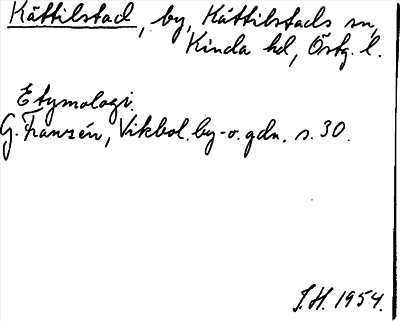 Kättilstad, by, Kättilstads sn,
Kinda hd, Östg. l.
Etymologi.
G. Franzén, Vikbol. by- o. gdn. s. 30.
J.H. 1954.